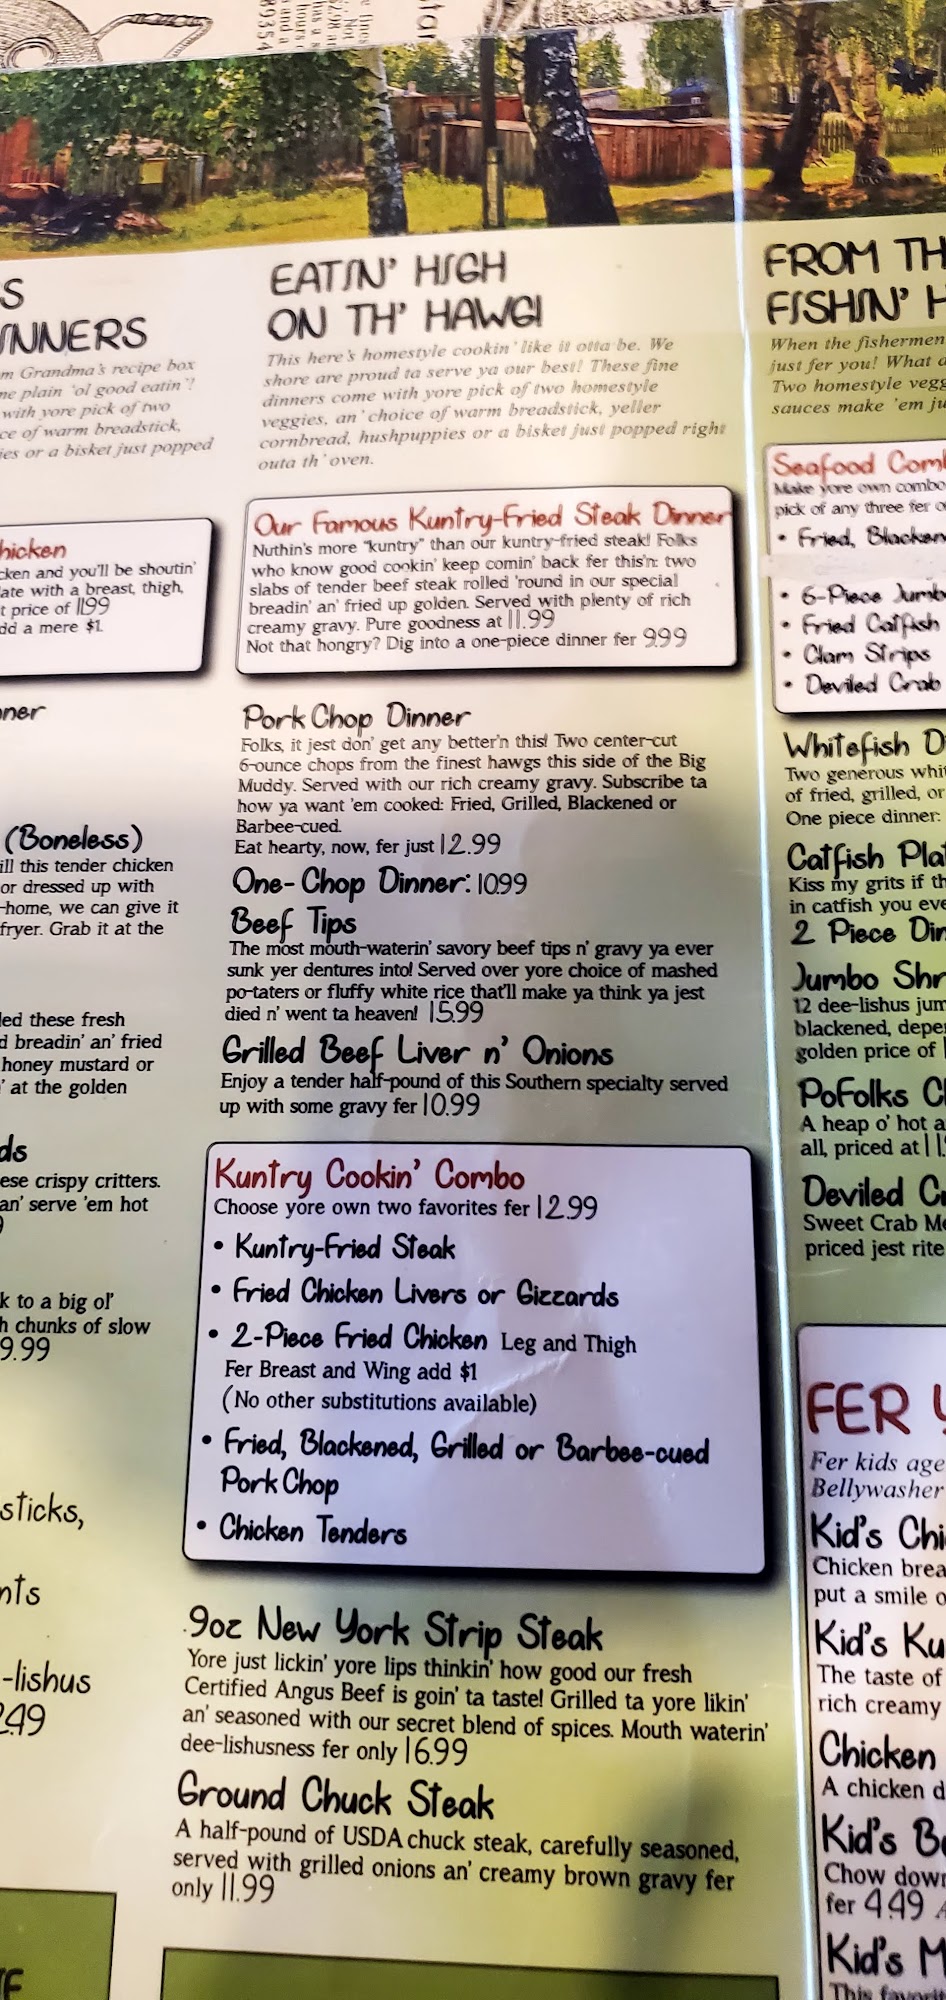 S
INNERS
m Grandma's recipe box
me plain 'ol good eatin'!
with yore pick of two
ce of warm breadstick,
ies or a bisket just popped
hicken
cken and you'll be shoutin'
late with a breast, thigh,
t price of 11.99
dd a mere $1.
nner
(Boneless)
ill this tender chicken
or dressed up with
-home, we can give it
fryer. Grab it at the
led these fresh
d breadin' an' fried
honey mustard or
' at the golden
ds
ese crispy critters.
an' serve 'em hot
9
k to a big ol'
h chunks of slow
9.99
sticks,
nts
-lishus
2.49
EATIN' HIGH
ON TH' HAWG!
This here's homestyle cookin' like it otta be. We
shore are proud ta serve ya our best! These fine
dinners come with yore pick of two homestyle
veggies, an' choice of warm breadstick, yeller
cornbread, hushpuppies or a bisket just popped right
outa th' oven.
Our Famous Kuntry-Fried Steak Dinner
Nuthin's more "kuntry" than our kuntry-fried steak! Folks
who know good cookin' keep comin' back fer this'n: two
slabs of tender beef steak rolled 'round in our special
breadin' an' fried up golden. Served with plenty of rich
creamy gravy. Pure goodness at 11.99
Not that hongry? Dig into a one-piece dinner fer 9.99
Pork Chop Dinner
Folks, it jest don' get any better'n this! Two center-cut
6-ounce chops from the finest hawgs this side of the Big
Muddy. Served with our rich creamy gravy. Subscribe ta
how ya want 'em cooked: Fried, Grilled, Blackened or
Barbee-cued.
Eat hearty, now, fer just 12.99
One-Chop Dinner: 10.99
Beef Tips
The most mouth-waterin' savory beef tips n' gravy ya ever
sunk yer dentures into! Served over yore choice of mashed
po-taters or fluffy white rice that'll make ya think ya jest
died n' went ta heaven! 15.99
Grilled Beef Liver n' Onions
Enjoy a tender half-pound of this Southern specialty served
up with some gravy fer 10.99
Kuntry Cookin' Combo
Choose yore own two favorites fer 12.99
• Kuntry-Fried Steak
• Fried Chicken Livers or Gizzards
• 2-Piece Fried Chicken Leg and Thigh
Fer Breast and Wing add $1
(No other substitutions available)
• Fried, Blackened, Grilled or Barbee-cued
Pork Chop
• Chicken Tenders
9oz New York Strip Steak
Yore just lickin' yore lips thinkin' how good our fresh
Certified Angus Beef is goin' ta taste! Grilled ta yore likin'
an' seasoned with our secret blend of spices. Mouth waterin'
dee-lishusness fer only 16.99
Ground Chuck Steak
A half-pound of USDA chuck steak, carefully seasoned,
served with grilled onions an' creamy brown gravy fer
only 11.99
FROM TH
FISHIN' H
When the fishermen
just fer you! What a
Two homestyle vegg
sauces make 'em ju
Seafood Comb
Make yore own combo
pick of any three fer o
• Fried, Blacken
• 6-Piece Jumb
• Fried Catfish
• Clam Strips
• Deviled Crab
Whitefish Di
Two generous whit
of fried, grilled, or
One piece dinner:
Catfish Plat
Kiss my grits if th
in catfish you eve
2 Piece Din
Jumbo Shr
12 dee-lishus jum
blackened, depe
golden price of
PoFolks Cl
A heap o' hot a
all, priced at 11.
Deviled Cr
Sweet Crab Me
priced jest rite
FER Y
Fer kids age
Bellywasher
Kid's Chi
Chicken brea
put a smile o
Kid's Ku
The taste of
rich creamy
Chicken
A chicken d
Kid's Be
Chow down
fer 4.49 A
Kid's M
This favorit